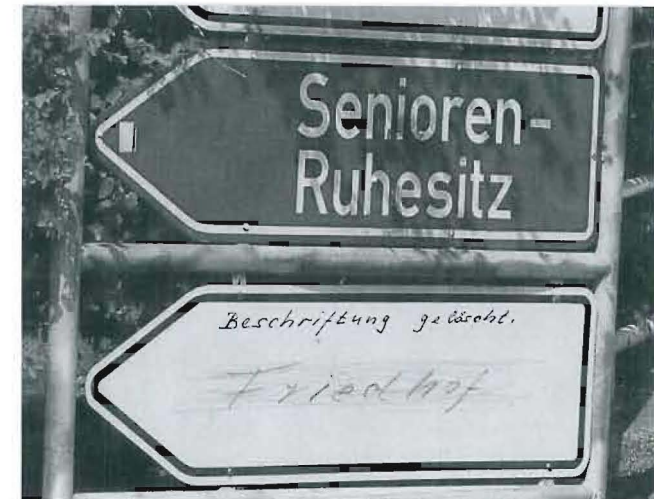 Senioren-
Ruhesitz
Beschriftung gelöscht.
Friedhof